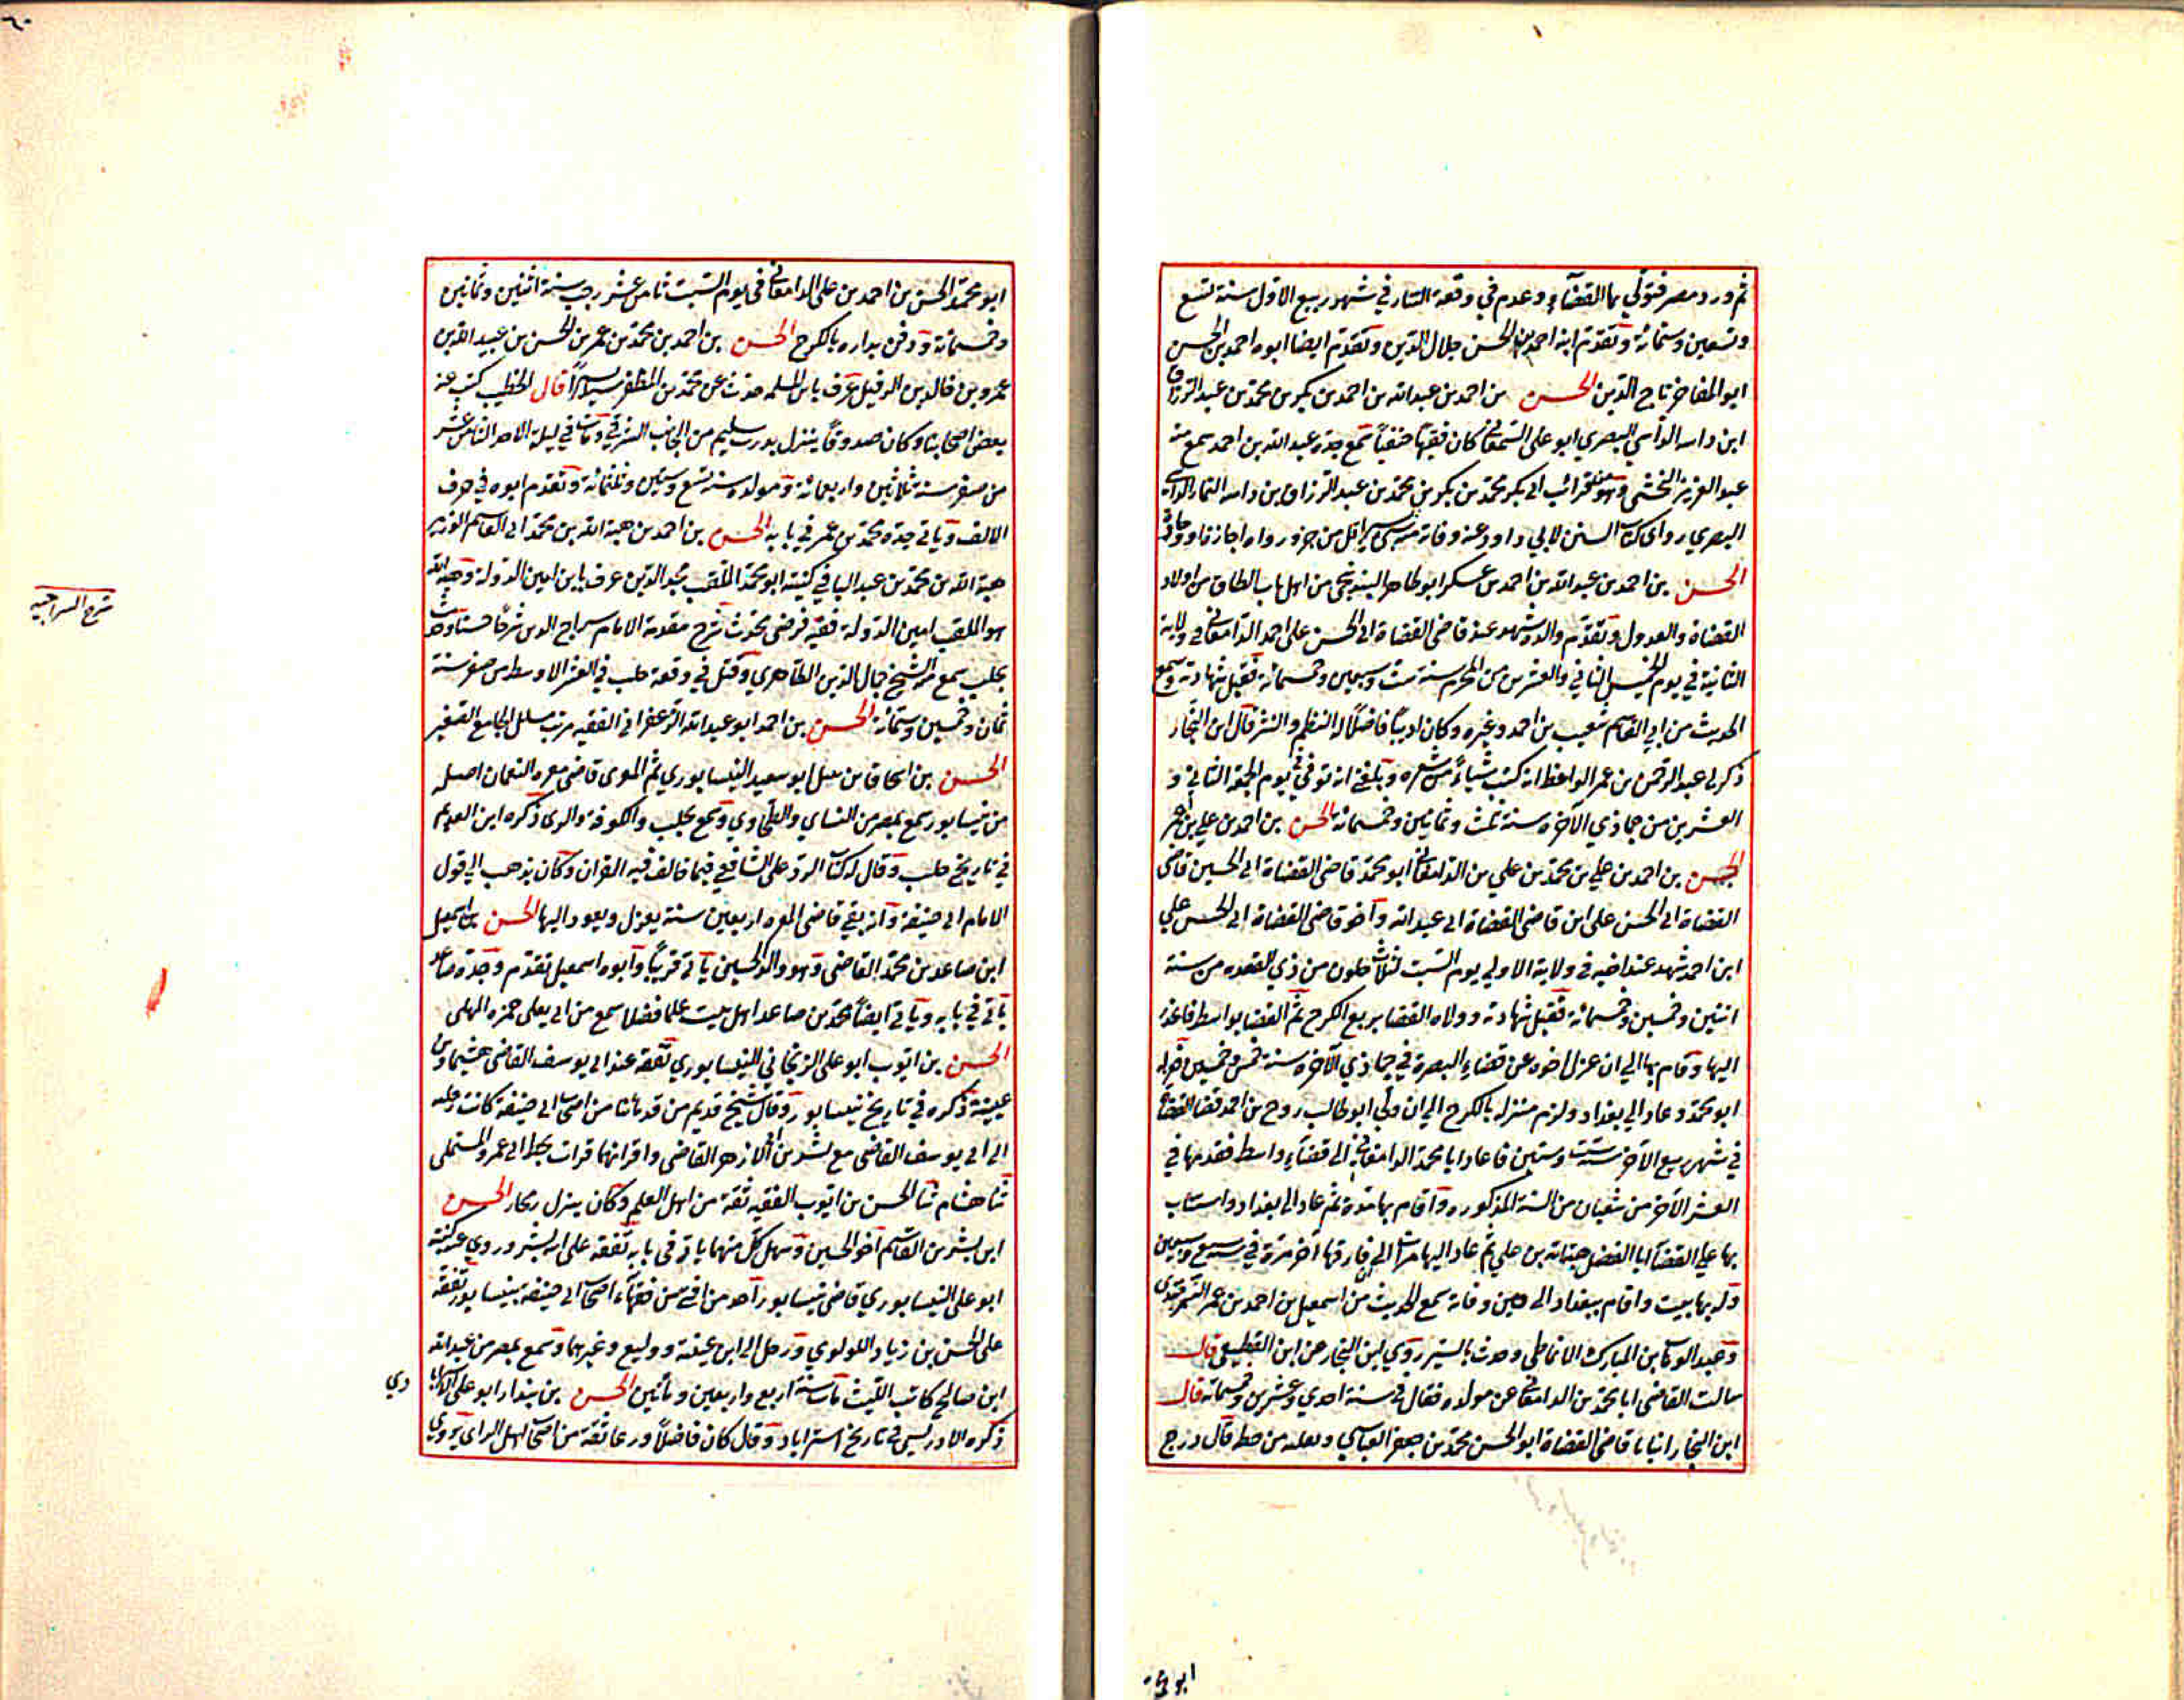 ثم ورد مصر فتولي بها القضاء وعدم في وقعة التتار في شهر ربيع الاول سنة تسع
وتسعين وستمائة وتقدم ابنه احمد بن الحسن جلال الدين وتقدم ايضا ابوه احمد بن الحسن
ابو المفاخر تاج الدين الحسن بن احمد بن عبد الله بن احمد بن بكر بن محمد بن عبد الرزاق
ابن داسه الداسي البصري ابو علي كان فقيها حنفيا سمع جده عبد الله بن احمد سمع منه
عبد العزيز النخشبي وهو من قرائب ابي بكر محمد بن بكر بن محمد بن عبد الرزاق بن داسه التمار
البصري راوي كتاب السنن لابي داود عنه وفاته منه شي يسير اقل من جزو رواه اجازة او وجادة
الحسن بن احمد بن عبد الله بن احمد بن عسكر ابو طاهر البندنيجي من اهل باب الطاق من اولاد
القضاة والعدول وتقدم والده شهد عند قاضي القضاة ابي الحسن علي احمد الدامغاني في ولايته
الثانية في يوم الخميس الثاني والعشرين من المحرم سنة ست وسبعين وخمسمائة فقبل شهادته وسمع
الحديث من ابي القاسم شعيب بن احمد وغيره وكان اديبا فاضلا له النظم والنثر قال ابن النجار
ذكر لي عبد الرحمن بن عمر الواعظ انه كتب شياء من شعره وبلغني انه توفي في يوم الجمعة الثاني و
العشرين من جماذي الآخره سنة ثلث وثمانين وخمسمائة الحسن بن احمد بن علي بن
الحسن بن احمد بن علي بن محمد بن علي بن الدامغاني ابو محمد قاضي القضاة ابي الحسين قاضي
القضاة ابي الحسن علي ابن قاضي القضاة ابي عبد الله وأخو قاضي القضاة ابي الحسن علي
ابن احمد شهد عند اخيه في ولايته الاولي يوم السبت لثلاث خلون من ذي القعده من سنة
اثنتين وخمسين وخمسمائه فقبل شهادته وولاه القضا بربع الكرخ ثم القضا بواسط فانحدر
اليها واقام بها الي ان عزل اخوه عن قضاء البصرة في جماذي الآخره سنة خمس وخمسين
ابو محمد وعاد الي بغداد ولزم منزله بالكرخ الي ان ولي ابو طالب روح بن احمد قضا القضاة
في شهر ربيع الآخر سنة ست وستين فاعاد ابا محمد الدامغاني الي قضاء واسط فقدمها في
العشر الآخر من شعبان من السنة المذكوره واقام بها مدة ثم عاد الي بغداد واستناب
بها علي القضاء ابا الفضل هبة الله بن علي ثم عاد اليها مرارا الي ان فارقها آخر مرة في سنة سبع وسبعين
وله بها بيت واقام ببغداد الي حين وفاته سمع الحديث من اسمعيل بن احمد بن عمر السمرقندي
وعبد الوهاب بن المبارك الانماطي وحدث باليسير روي ابن النجار عن ابن القطيعي قال
سالت القاضي ابا محمد بن الدامغاني عن مولده فقال في سنة احدي وعشرين وخمسمائه قال
ابن النجار انبانا قاضي القضاة ابو الحسن محمد بن جعفر العباسي ونقلته من خطه قال درج
ابو محمد
٦٠
ابو محمد الحسن بن احمد بن علي الدامغاني في يوم السبت ثامن عشر رجب سنة اثنتين وثمانين
وخمسمائة ودفن بداره بالكرخ الحسن بن احمد بن محمد بن عمر بن الحسن بن عبيد الله بن
عمرو بن خالد بن الرفيل عرف بابن المسلمه حدث عن محمد بن المظفر يسيرا قال الخطيب كتب عنه
بعض اصحابنا وكان صدوقا ينزل بدرب سليم من الجانب الشرقي ومات في ليلة الاحد الثامن عشر
من صفر سنة ثلاثين واربعمائة ومولده سنة تسع وستين وثلثمائة وتقدم ابوه في حرف
الالف وياتي جده محمد بن عمر في بابه الحسن بن احمد بن هبة الله بن محمد ابي القاسم الوزير
هبة الله بن محمد بن عبد الباقي كنيته ابو محمد الملقب مجد الدين عرف بابن امين الدولة وهبة الله
هو الملقب امين الدولة فقيه فرضي محدث شرح مقدمة الامام سراج الدين شرحا حسنا وحدث
بحلب سمع من الشيخ جمال الدين الظاهري وقتل في وقعة حلب في العشر الاوسط من صفر سنة
ثمان وخمسين وستمائة الحسن بن احمد ابو عبد الله الزعفراني الفقيه مرتب مسائل الجامع الصغير
الحسن بن اسحاق بن نبيل ابو سعيد النيسابوري ثم المعري قاضي معرة النعمان اصله
من نيسابور سمع بمصر من النساي والطحاوي وسمع بحلب والكوفة والري ذكره ابن العديم
في تاريخ حلب وقال له كتاب الرد علي الشافعي فيما خالف فيه القران وكان يذهب الي قول
الامام ابي حنيفة وانه بقي قاضي المعره اربعين سنة يعزل ويعود اليها الحسن بن اسمعيل
ابن صاعد بن محمد القاضي وهو والد الحسين ياتي قريبا وابوه اسمعيل تقدم وجده صاعد
ياتي في بابه وياتي ايضا محمد بن صاعد اهل بيت علما فضلا سمع من ابي يعلي حمزه المهلبي
الحسن بن ايوب ابو علي الزنجاني النيسابوري تفقه عند ابي يوسف القاضي هشيما وابن
عيينة ذكره في تاريخ نيسابور وقال شيخ قديم من قدمائنا من اصحاب ابي حنيفه كانت رحلته
الي ابي يوسف القاضي مع بشر بن ابي الازهر القاضي واقرانهما قرات بخط ابي عمرو المستملي
ثنا هشام ثنا الحسن بن ايوب الفقيه ثقة من اهل العلم وكان ينزل رمجار الحسن
ابن بشر بن القاسم أخو الحسين وسهل كل منهما ياتي في بابه تفقه علي ابيه بشر وروي عنه كنيته
ابو علي النيسابوري قاضي نيسابور أحد من افتي من فقهاء اصحاب ابي حنيفه بنيسابور تفقه
علي الحسن بن زياد اللولوي ورحل الي ابن عيينة ووكيع وغيرهما وسمع بمصر من عبد الله
ابن صالح كاتب الليث مات سنة اربع واربعين ومأتين الحسن بن بندار ابو علي
ذكره الادريسي في تاريخ استراباد وقال كان فاضلا ورعا ثقة من اصحاب اهل الراي يروي
شرح السراجيه